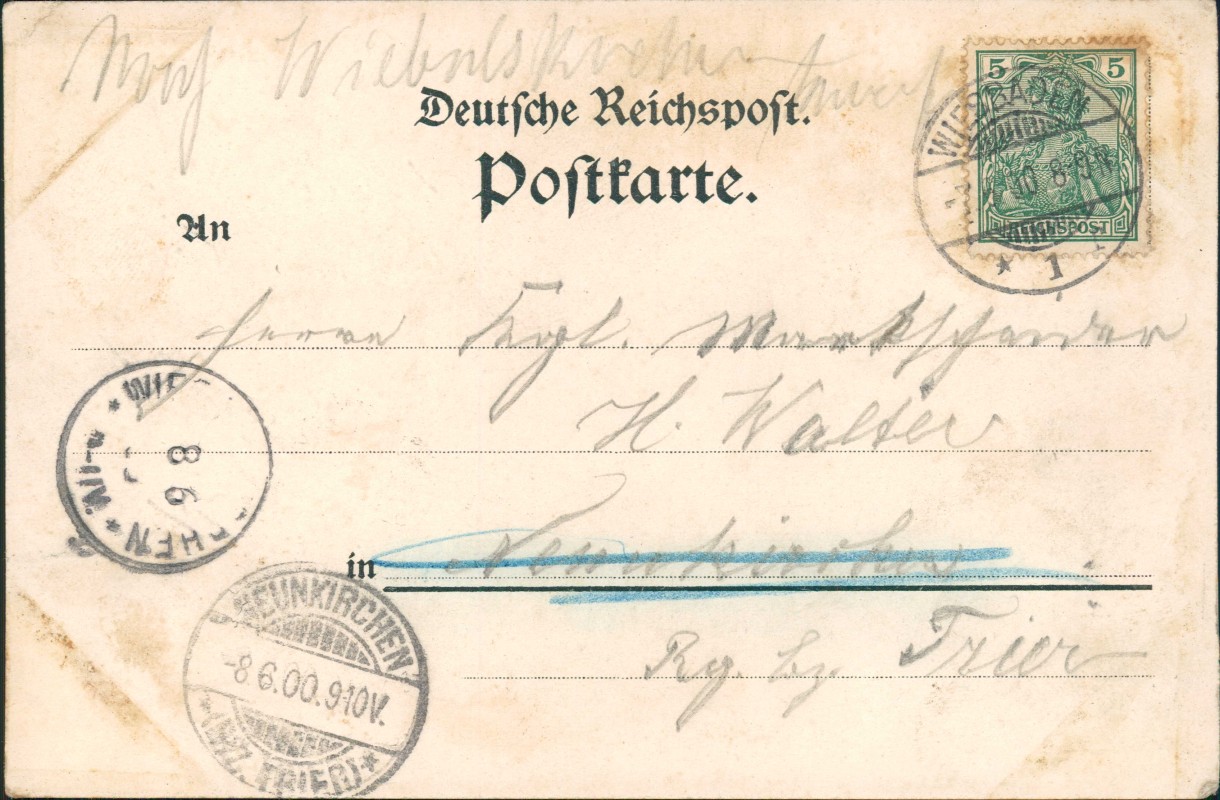 Nach Wiebelskirchen
Deutsche Reichspost.
Postkarte.
5 5
REICHSPOST
WIESBADEN
8-9N
* 1
An
Herrn Kgl. Markscheider
H. Walter
in Neunkirchen
Rg. bz. Trier
* WIE
8 6
CHEN *
NEUNKIRCHEN
-8 6.00.9-10V.
* (BZ. TRIER) *